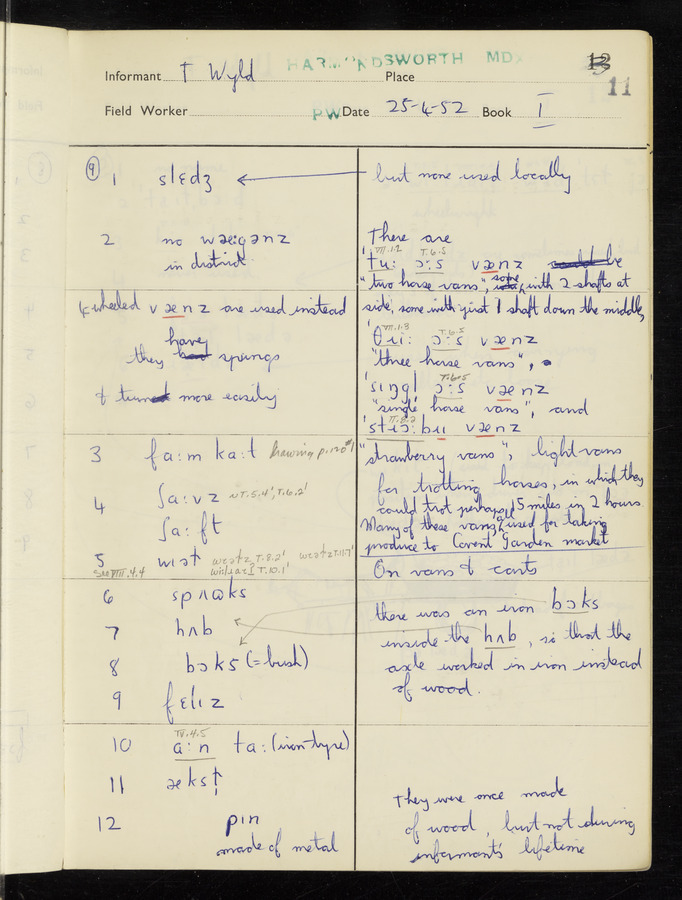 Informant T Wyld HARMONDSWORTH MDX Place 13 11
Field Worker PW Date 25-4-52 Book I
(9) 1 slɛdʒ ← but none used locally
2 no wæːgənz
in district
There are
VII.1.2 T.6.5
'tuː ɔːs vænz
"two horse vans", some with 2 shafts at
side, some with just 1 shaft down the middle,
4 wheeled vænz are used instead
they have springs
& turn more easily
VII.1.3 T.6.5
'θɹiː ɔːs vænz
"three horse vans",
T.6.5
'sɪŋgl ɔːs vænz
"single horse vans", and
3 faːm kaːt Drawing p.120 #1
"strawberry vans", light vans
for trotting horses, in which they
could trot perhaps 15 miles in 2 hours
Many of these vans used for taking
produce to Covent Garden market
4 ʃaːvz vT.5.4', T.6.2'
ʃaːft
5
See VIII.4.4
On vans & carts
6 spʌʊks
7 hʌb
8 bɔks (= bush)
9 fɛlɪz
there was an iron bɔks
inside the hʌb, so that the
axle worked in iron instead
of wood.
IV.4.5
10 aːn taː (iron-tyre)
11 ækstɹ̩
12 pɪn
made of metal
They were once made
of wood, but not during
informant's lifetime